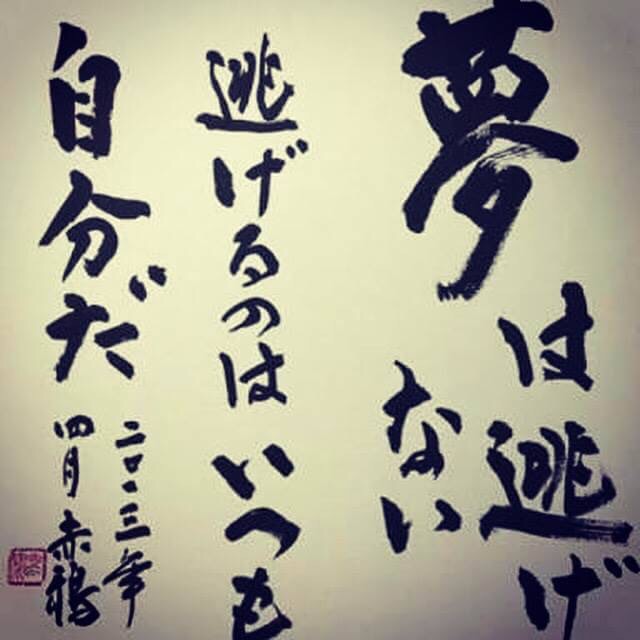 夢は逃げ
ない
逃げるのはいつも
自分だ
二〇一三年
四月 赤鴉